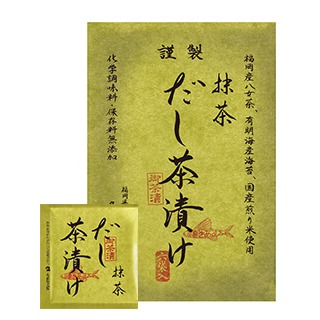 謹製
福岡産八女茶、有明海産海苔、国産煎り米使用
抹茶
だし茶漬け
御茶漬
化学調味料・保存料無添加
六袋入
抹茶
だし
茶漬け
御茶漬